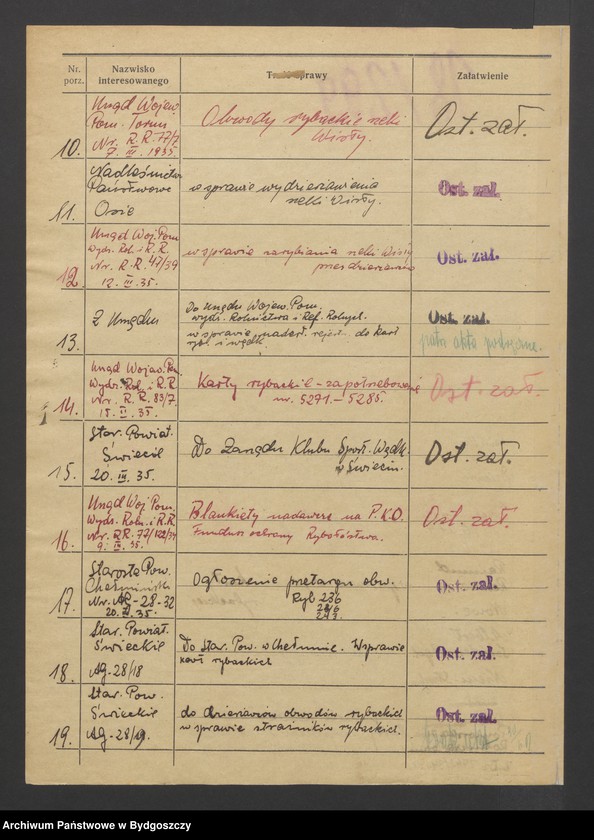 Nr. porz.
Nazwisko interesowanego
Treść sprawy
Załatwienie
10.
Urząd Wojew.
Pom. Toruń
Nr. R.R. 77/7
7. III. 1935
Obwody rybackie rzeki
Wisły.
Ost. zał.
11.
Nadleśnictwo
Państwowe
Osie
w sprawie wydzierżawienia
rzeki Wisły.
Ost. zał.
12.
Urząd Woj. Pom
Wydz. Rol. i R.R.
Nr. R.R. 47/39
12. III. 35.
w sprawie zarybiania rzeki Wisły
Ost. zał.
13.
Z Urzędu
Do Urzędu Wojew. Pom.
wydz. Rolnictwa i Ref. Rolnych.
w sprawie nadesł. rejestr. do kart
ryb. i wędk.
Ost. zał.
patrz akta
14.
Urząd Wojew. Pom.
Wydz. Rol. i R.R
Nr. R.R. 83/7.
15. II. 35.
Karty rybackie - zapotrzebowanie
nr. 5271. - 5285.
Ost. zał.
15.
Star. Powiat.
Świecie
20. III. 35.
Do Zarządu Klubu Sport. Wędk.
w Świeciu.
Ost. zał.
16.
Urząd Woj. Pom.
Wydz. Roln. i R.R.
Nr. R.R. 77/122/34
9. III. 35.
Blankiety nadawcze na P.K.O.
Fundusz ochrony Rybołóstwa.
Ost. zał.
17.
Starosta Pow.
Chełmiński
Nr. Ag-28-32
35.
Ogłoszenie przetargu obw.
Ryb 236
Ost. zał.
18.
Star. Powiat.
Świeckie
Ag-28/18
Do Star. Pow. w Chełmnie. W sprawie
kart rybackich
Ost. zał.
19.
Star. Pow.
Świeckie
Ag-28/19.
do dzierżawców obwodów rybackich
w sprawie strażników rybackich.
Ost. zał.
Archiwum Państwowe w Bydgoszczy